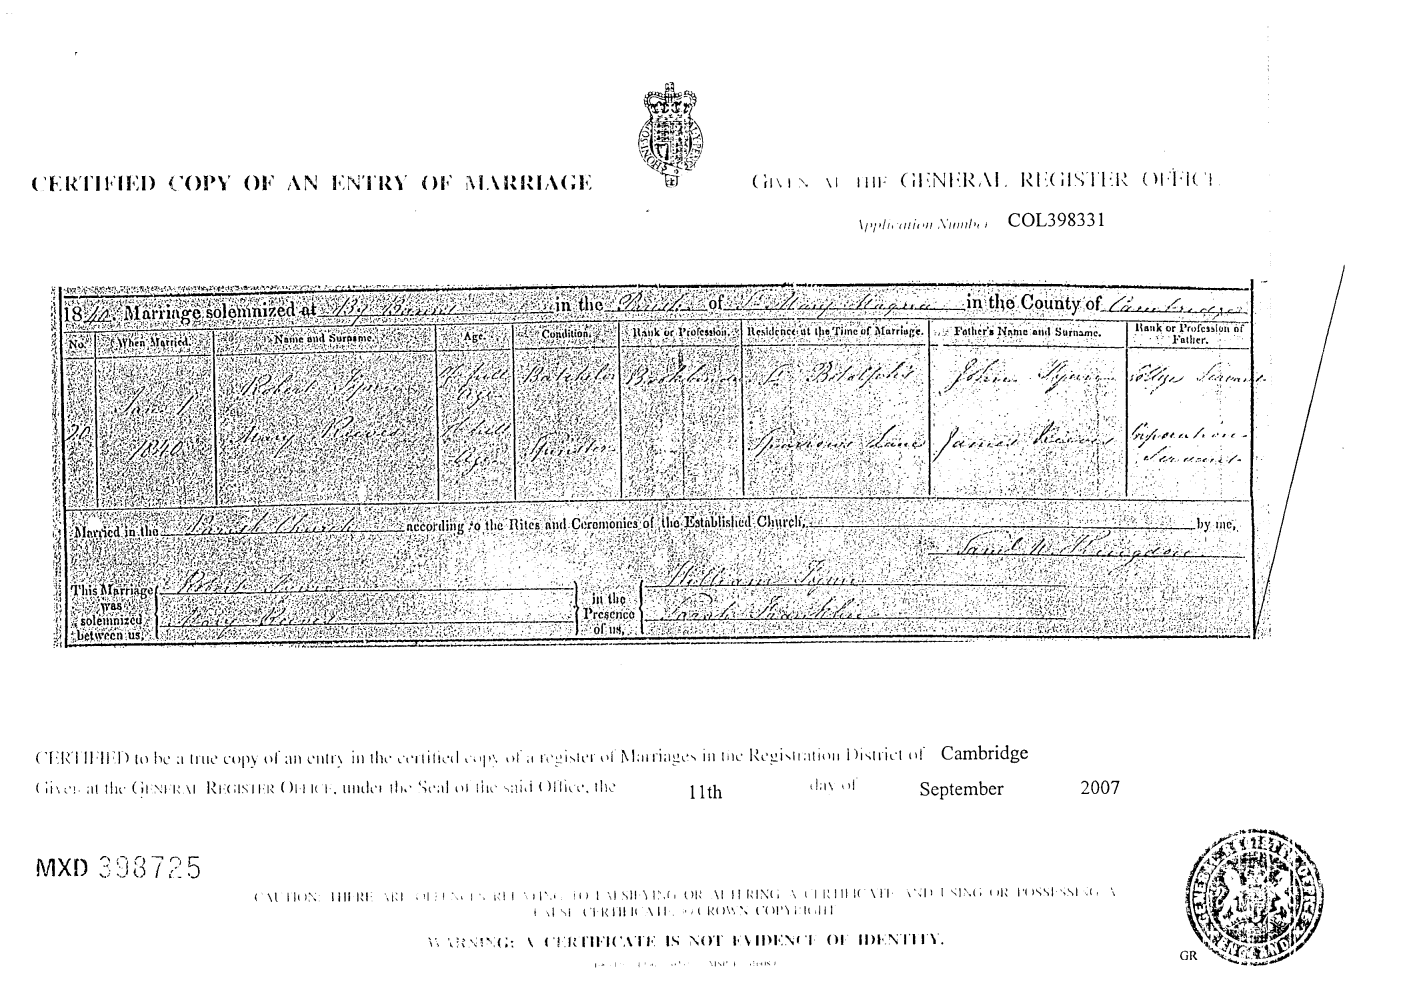 CERTIFIED COPY OF AN ENTRY OF MARRIAGE
GIVEN AT THE GENERAL REGISTER OFFICE
Application Number COL398331
1840. Marriage solemnized at By Banns in the Parish of St. Mary Magna in the County of Cambridge
No. When Married. Name and Surname. Age. Condition. Rank or Profession. Residence at the Time of Marriage. Father's Name and Surname. Rank or Profession of Father.
Robert Of full Age Batchelor Bookbinder St. Botolph's John College Servant
Jany 1
1840 Mary Reeves Of full Age Spinster Lane James Reeves Corporation Servant
Married in the Parish Church according to the Rites and Ceremonies of the Established Church, by me,
This Marriage was solemnized between us, Robert
Mary Reeves
in the Presence of us, William
Sarah Franklin
CERTIFIED to be a true copy of an entry in the certified copy of a register of Marriages in the Registration District of Cambridge
Given at the GENERAL REGISTER OFFICE, under the Seal of the said Office, the 11th day of September 2007
MXD 398725
CAUTION: THERE ARE OFFENCES RELATING TO FALSIFYING OR ALTERING A CERTIFICATE AND USING OR POSSESSING A
FALSE CERTIFICATE. © CROWN COPYRIGHT
WARNING: A CERTIFICATE IS NOT EVIDENCE OF IDENTITY.
GENERAL REGISTER OFFICE ENGLAND
GR